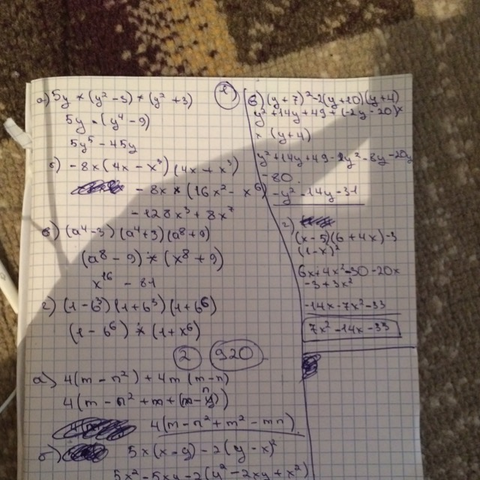 а) 5y × (y² - 3) × (y² + 3)
5y · (y⁴ - 9)
5y⁵ - 45y
б) - 8x (4x - x³) (4x + x³)
- 8x × (16x² - x⁶)
- 128x³ + 8x⁷
в) (a⁴-3) (a⁴+3) (a⁸+9)
(a⁸ - 9) × (x⁸ + 9)
x¹⁶ - 81
г) (1-b³) (1+b³) (1+b⁶)
(1 - b⁶) × (1+x⁶)
2 920
а) 4(m - n²) + 4m (m-n)
4(m - n² + m + (m-n))
4(m - n² + m² - mn)
б) 5x (x-y) - 2(y-x)²
5x² - 5xy - 2(y² - 2xy + x²)
1
в) (y+7)² - 2(y+10)(y+4)
y² + 14y + 49 + (-2y - 20) ×
× (y+4)
y² + 14y + 49 - 2y² - 8y - 20y
- 80
- y² - 14y - 31
г)
(x-5)(6+4x) - 3
(1-x)²
6x + 4x² - 30 - 20x
- 3 + 3x²
- 14x - 7x² - 33
7x² - 14x - 33